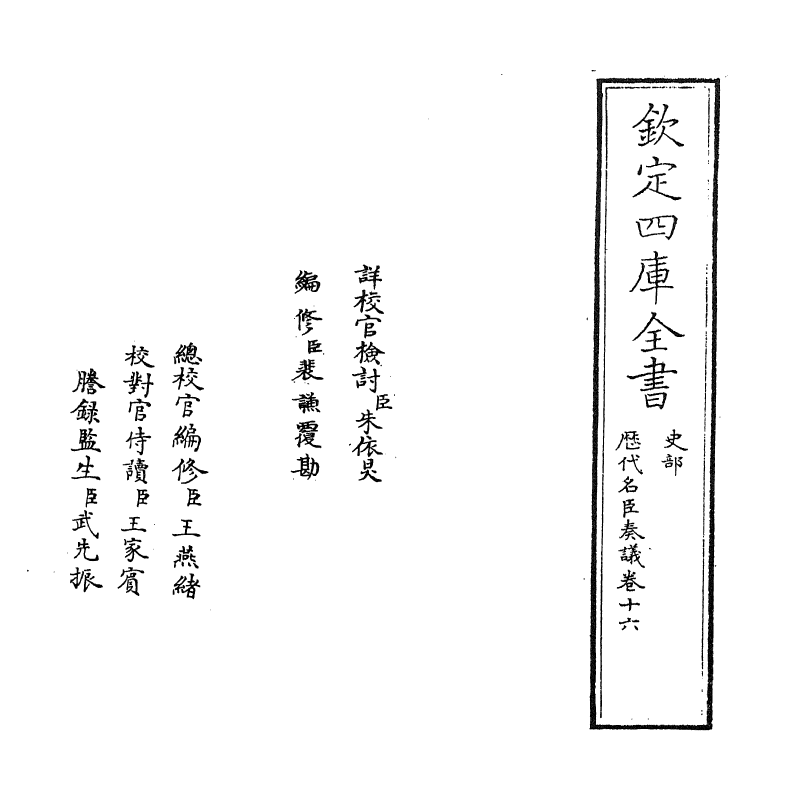 欽定四庫全書
史部
歴代名臣奏議卷十六
詳校官檢討臣朱依炅
編修臣裴謙覆勘
總校官編修臣王燕緒
校對官侍讀臣王家賓
謄録監生臣武先振